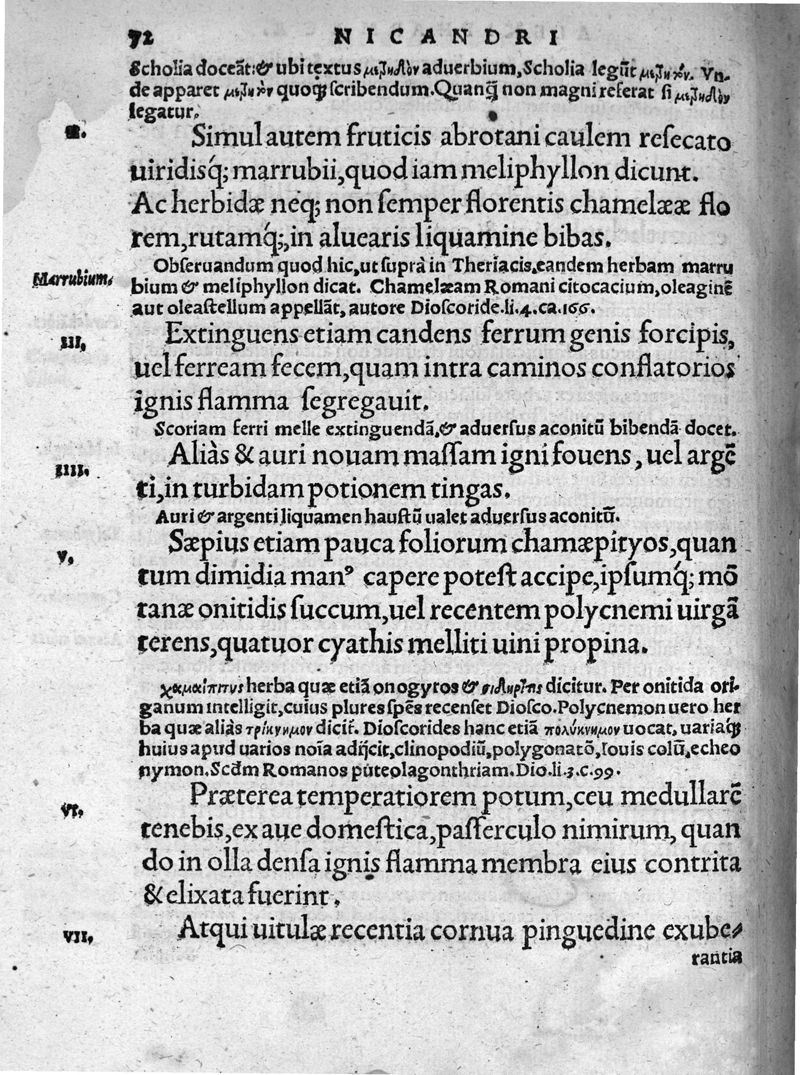 72 NICANDRI
Scholia doceāt: & ubi textus aduerbium, Scholia legūt Vn-
de apparet quoq̃ scribendum. Quanq̃ non magni referat si
legatur.
II. Simul autem fruticis abrotani caulem resecato
uiridisq́; marrubii, quod iam meliphyllon dicunt.
Ac herbidæ neq; non semper florentis chamelææ flo
rem, rutamq́;, in aluearis liquamine bibas.
Obseruandum quod hic, ut suprà in Theriacis, eandem herbam marru
Marrubium. bium & meliphyllon dicat. Chamelæam Romani citocacium, oleaginē
aut oleastellum appellāt, autore Dioscoride. li. 4. ca. 166.
III. Extinguens etiam candens ferrum genis forcipis,
uel ferream fecem, quam intra caminos conflatorios
ignis flamma segregauit.
Scoriam ferri melle extinguendā, & aduersus aconitū bibendā docet.
IIII. Aliàs & auri nouam massam igni fouens, uel argē
ti, in turbidam potionem tingas.
Auri & argenti liquamen haustū ualet aduersus aconitū.
V. Sæpius etiam pauca foliorum chamæpityos, quan
tum dimidia manꝰ capere potest accipe, ipsumq́; mō
tanæ onitidis succum, uel recentem polycnemi uirgā
terens, quatuor cyathis melliti uini propina.
χαμαίπιτυς herba quæ etiā onogyros & σιδηρῖτις dicitur. Per onitida ori-
ganum intelligit, cuius plures spēs recenset Diosco. Polycnemon uero her
ba quæ aliàs τρίκνημον dicit̃. Dioscorides hanc etiā πολύκνημον uocat, uariaq̃
huius apud uarios noīa adijcit, clinopodiū, polygonatō, Iouis colū, echeo
nymon. Scdm Romanos puteolagonthriam. Dio. li. 3. c. 99.
VI. Præterea temperatiorem potum, ceu medullarē
tenebis, ex aue domestica, passerculo nimirum, quan
do in olla densa ignis flamma membra eius contrita
& elixata fuerint.
VII. Atqui uitulæ recentia cornua pinguedine exube-
rantia